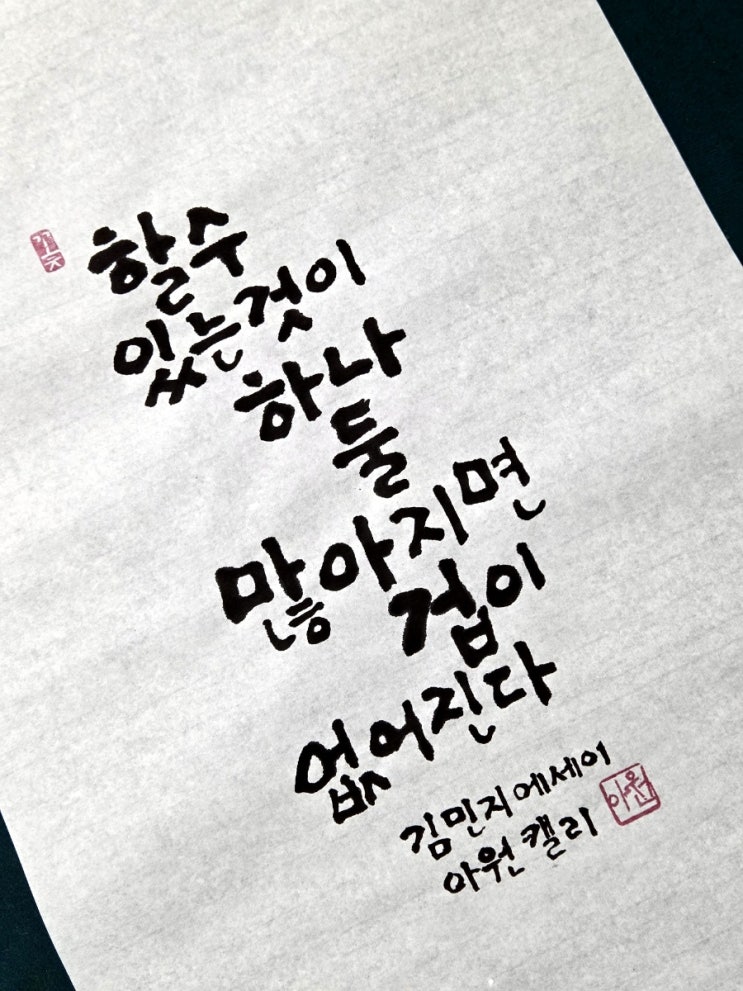 할수
있는것이
하나
둘
많아지면
겁이
없어진다
김민지에세이
아원캘리
아원